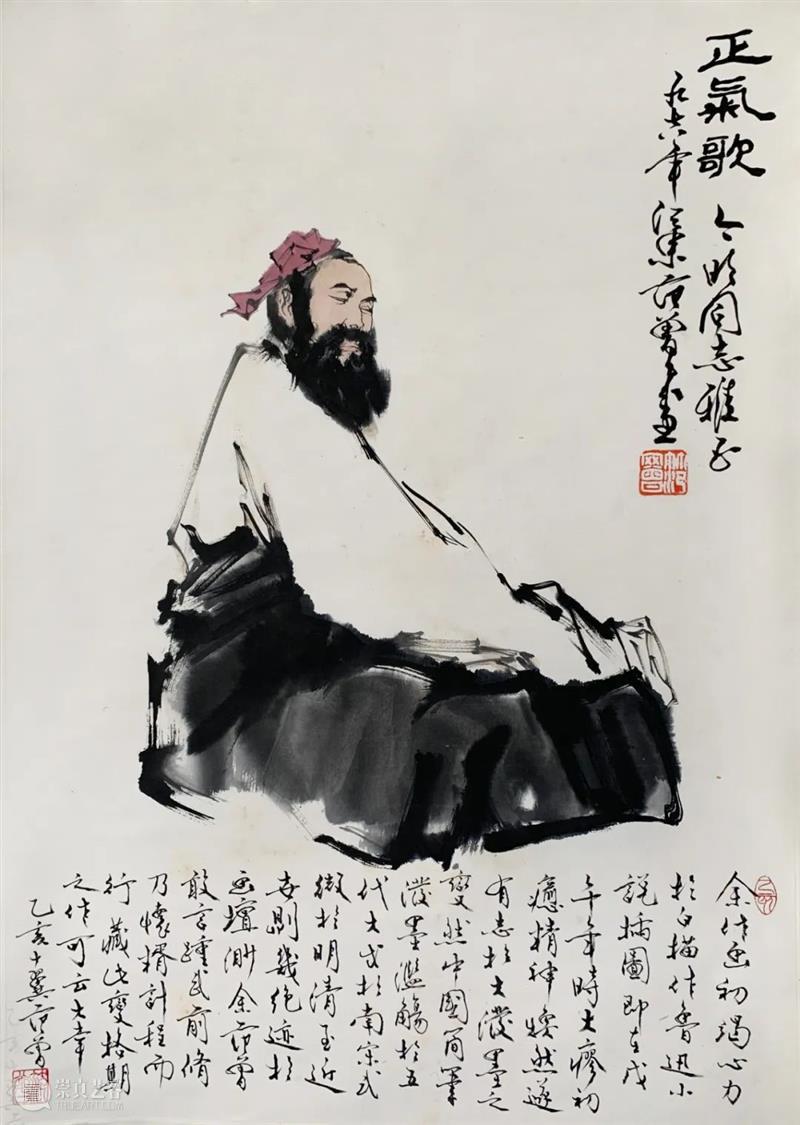 正氣歌 同志雅正
年 江東范曾畫
余作畫初竭心力
於白描作魯迅小
說插圖即在戊
午年時大瘳初
癒精神煥然遂
有志於大潑墨之
變然中國简筆
潑墨濫觴於五
代大成於南宋式
微於明清至近
世則幾絕迹於
畫壇渺余范曾
敢言踵武前脩
乃懷揣計程而
行藏此變格期
之作可云大幸
乙亥十翼范曾
崇真艺客
TRUEART.COM